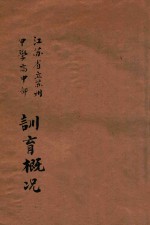 江苏省立苏州
中学高中部
訓育概况